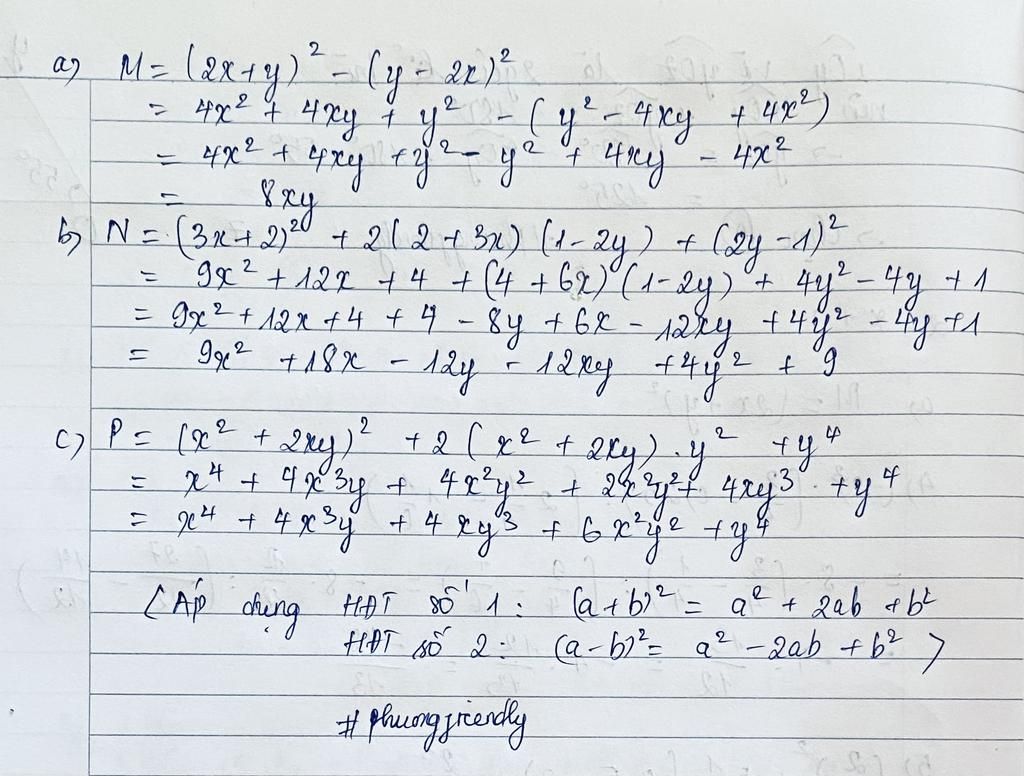 a) M = (2x+y)² - (y - 2x)²
= 4x² + 4xy + y² - (y² - 4xy + 4x²)
= 4x² + 4xy + y² - y² + 4xy - 4x²
= 8xy
b) N = (3x+2)² + 2(2+3x)(1-2y) + (2y-1)²
= 9x² + 12x + 4 + (4+6x)(1-2y) + 4y² - 4y + 1
= 9x² + 12x + 4 + 4 - 8y + 6x - 12xy + 4y² - 4y + 1
= 9x² + 18x - 12y - 12xy + 4y² + 9
c) P = (x² + 2xy)² + 2(x² + 2xy).y² + y⁴
= x⁴ + 4x³y + 4x²y² + 2x²y² + 4xy³ + y⁴
= x⁴ + 4x³y + 4xy³ + 6x²y² + y⁴
(Áp dụng HĐT số 1: (a+b)² = a² + 2ab + b²
HĐT số 2: (a-b)² = a² - 2ab + b²)
#phuongfriendly